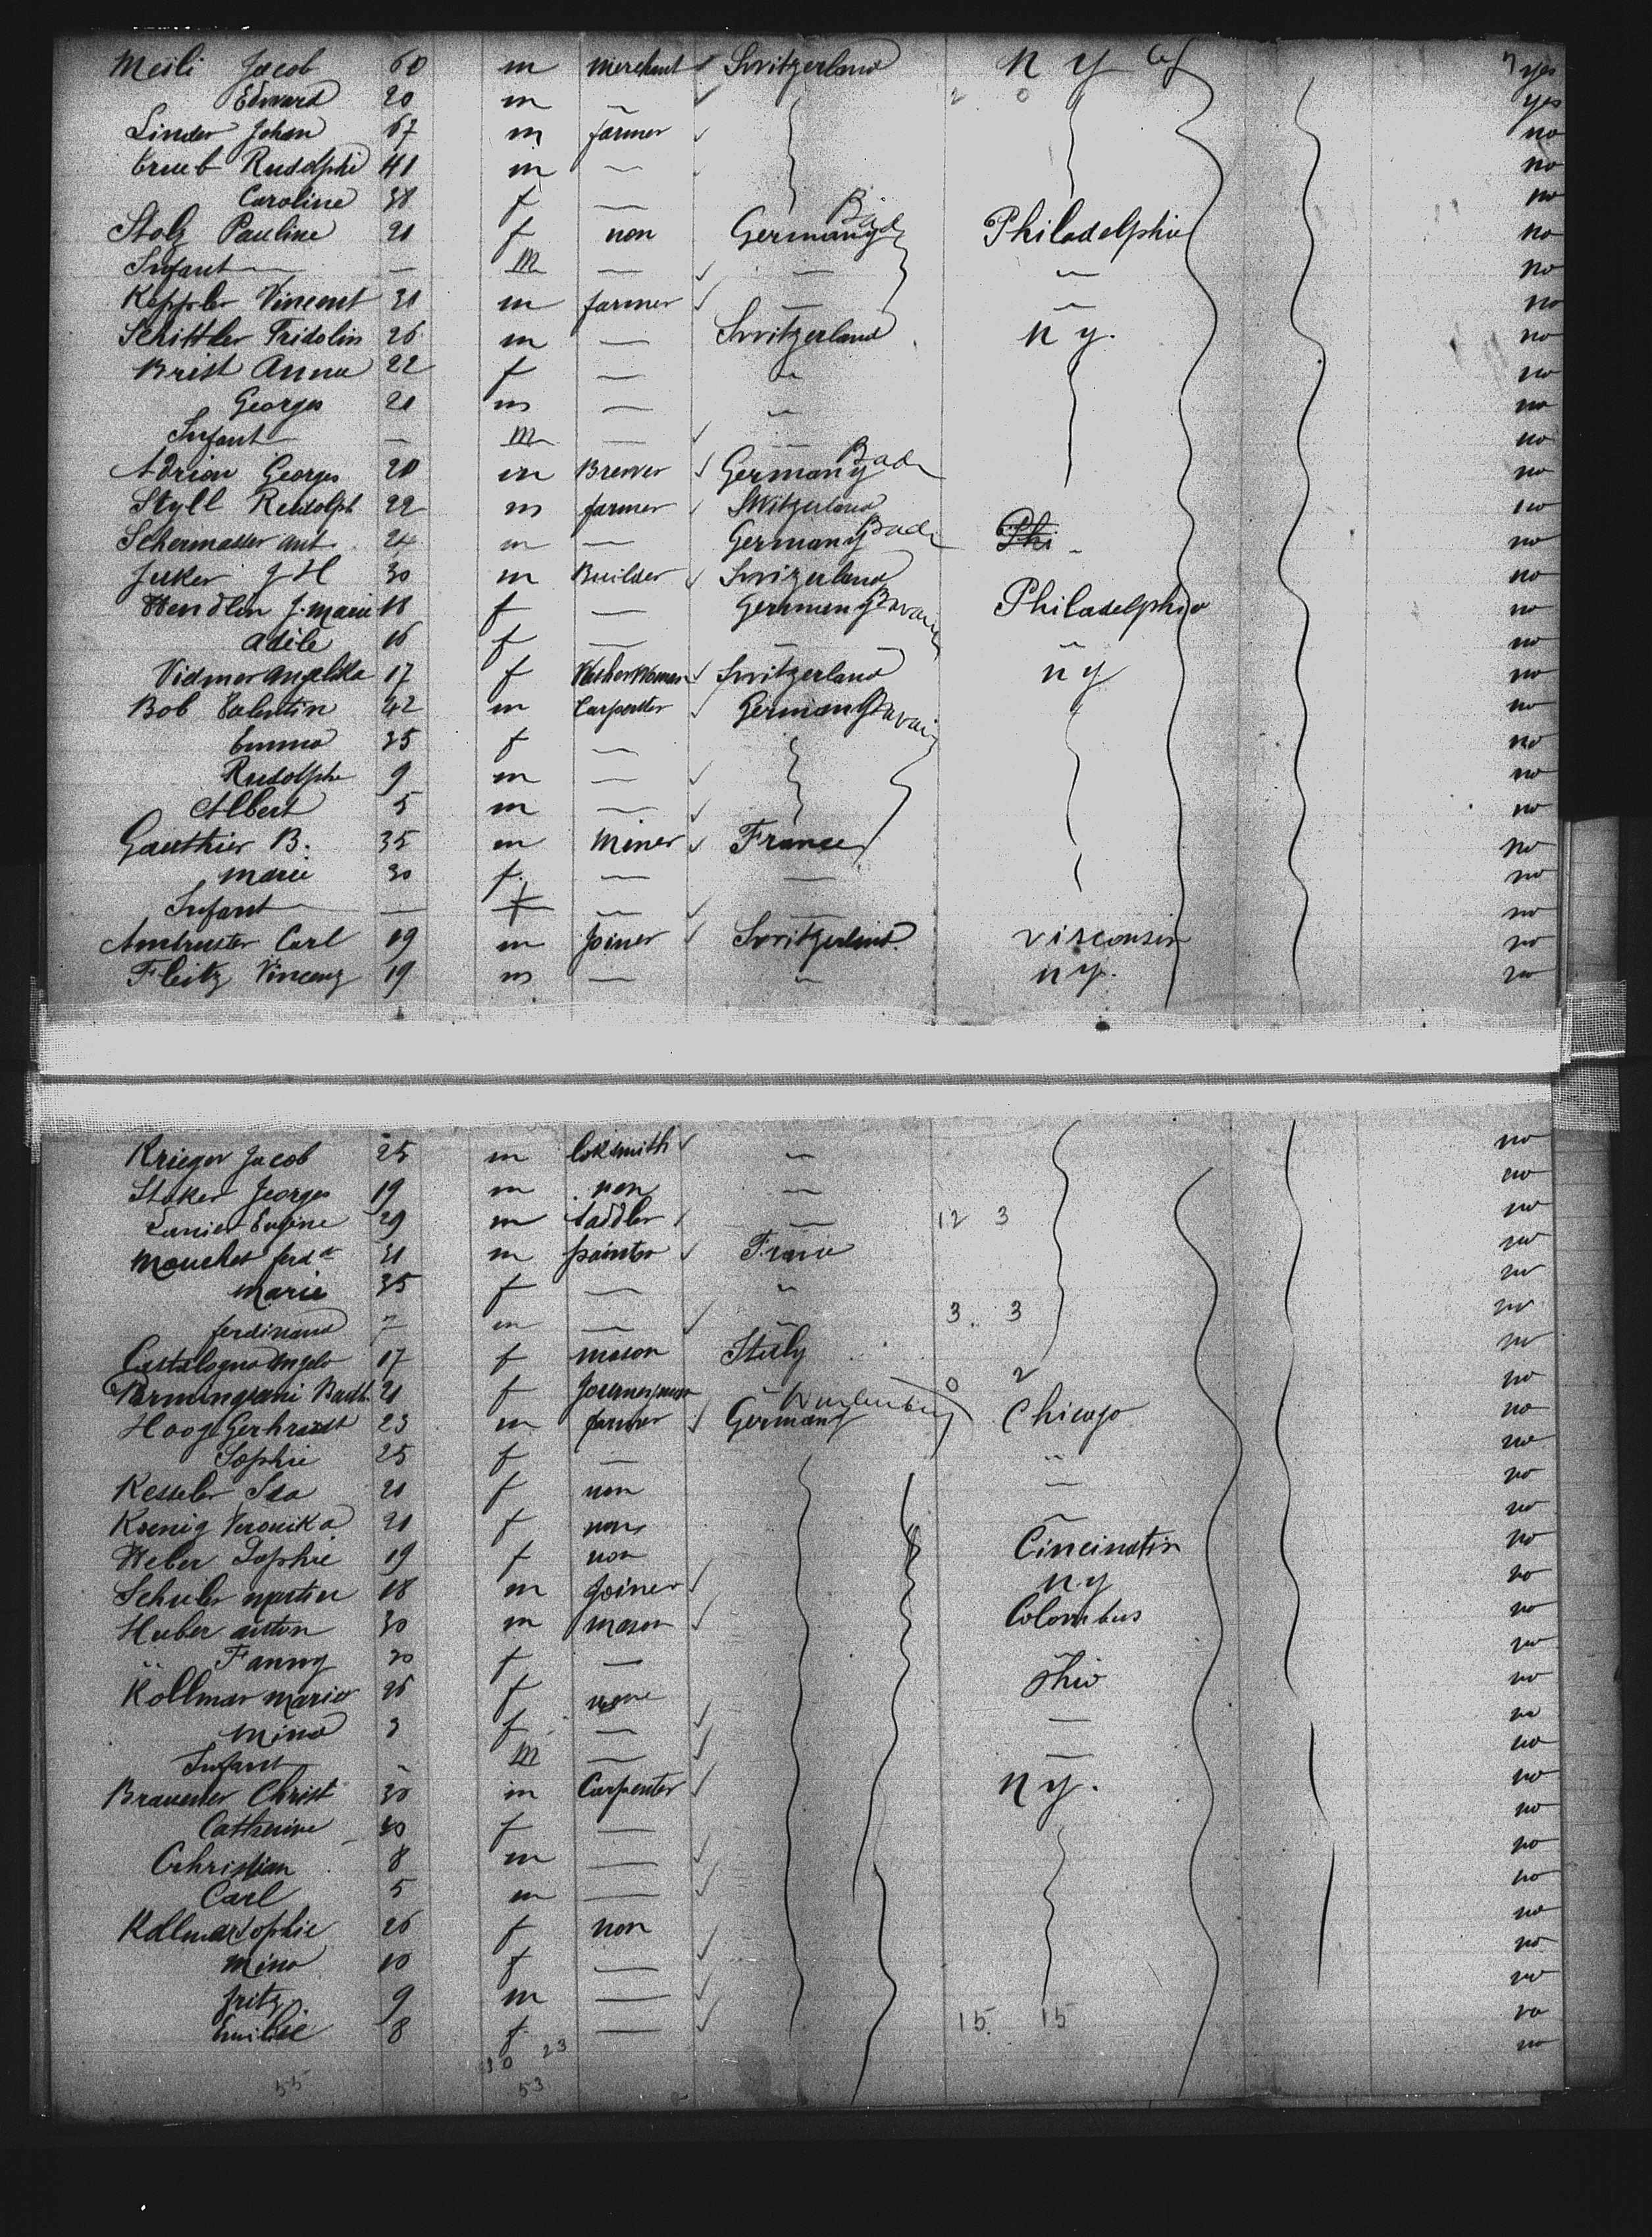 Meili Jacob 60 m merchant Switzerland N Y yes
Edward 20 m — 2 0 yes
Linder Johan 67 m farmer no
Trueb Rudolphe 41 m — no
Caroline 38 f — no
Stolz Pauline 21 f non Germany Bade Philadelphia no
Infant — m — — no
Keppler Vincent 31 m farmer — no
Schittler Fridolin 26 m — Switzerland N Y. no
Brist Anna 22 f — no
Georges 21 m — no
Infant — m — — no
Adrion Georges 20 m Brewer Germany Bade no
Styll Rudolph 22 m farmer Switzerland no
Schermasser ant. 24 m — Germany Bade Phi no
Juker J H 30 m Builder Switzerland no
Wendlin J. Marie 18 f — Germany Philadelphia no
Adèle 16 f — — no
Vidmer Angelika 17 f Washerwoman Switzerland n y no
Bob Valentin 42 m Carpenter Germany no
Emma 35 f — no
Rudolphe 9 m — no
Albert 5 m — no
Gauthier B. 35 m Miner France no
Marie 30 f. — — no
Infant — f — — no
Ambruster Carl 19 m Joiner Switzerland visconsin no
Fleitz Vincenz 19 m — n y. no
Krieger Jacob 25 m loksmith no
Stoker Georges 19 m non — no
Eugène 29 m saddler — 12 3 no
Mouchet ferd 31 m painter France no
Marie 35 f — no
ferdinand 7 m — 3 3 no
Castalogna Angelo 17 f mason Italy no
21 f Journeyman 0 2 no
Hoog Gerhardt 23 m farmer Germany Wurtemburg Chicago no
Sophie 25 f — no
Kesseler Ida 21 f non — no
Koenig Veronika 21 f non no
Weber Sophie 19 f non Cincinatin no
Schuler Martin 18 m Joiner n.y no
Huber Anton 30 m mason Colombus no
Fanny 30 f — no
Kollmar Maria 26 f none Ohio no
Mina 3 f — — no
Infant — m — — no
Christ 30 m Carpenter n y. no
Catherine 40 f — no
Chhristian 8 m — no
Carl 5 m — no
Kollmar Sophie 26 f non no
Mina 10 f — no
fritz 9 m — no
Emilie 8 f — 15. 15 no
30 23
55 53